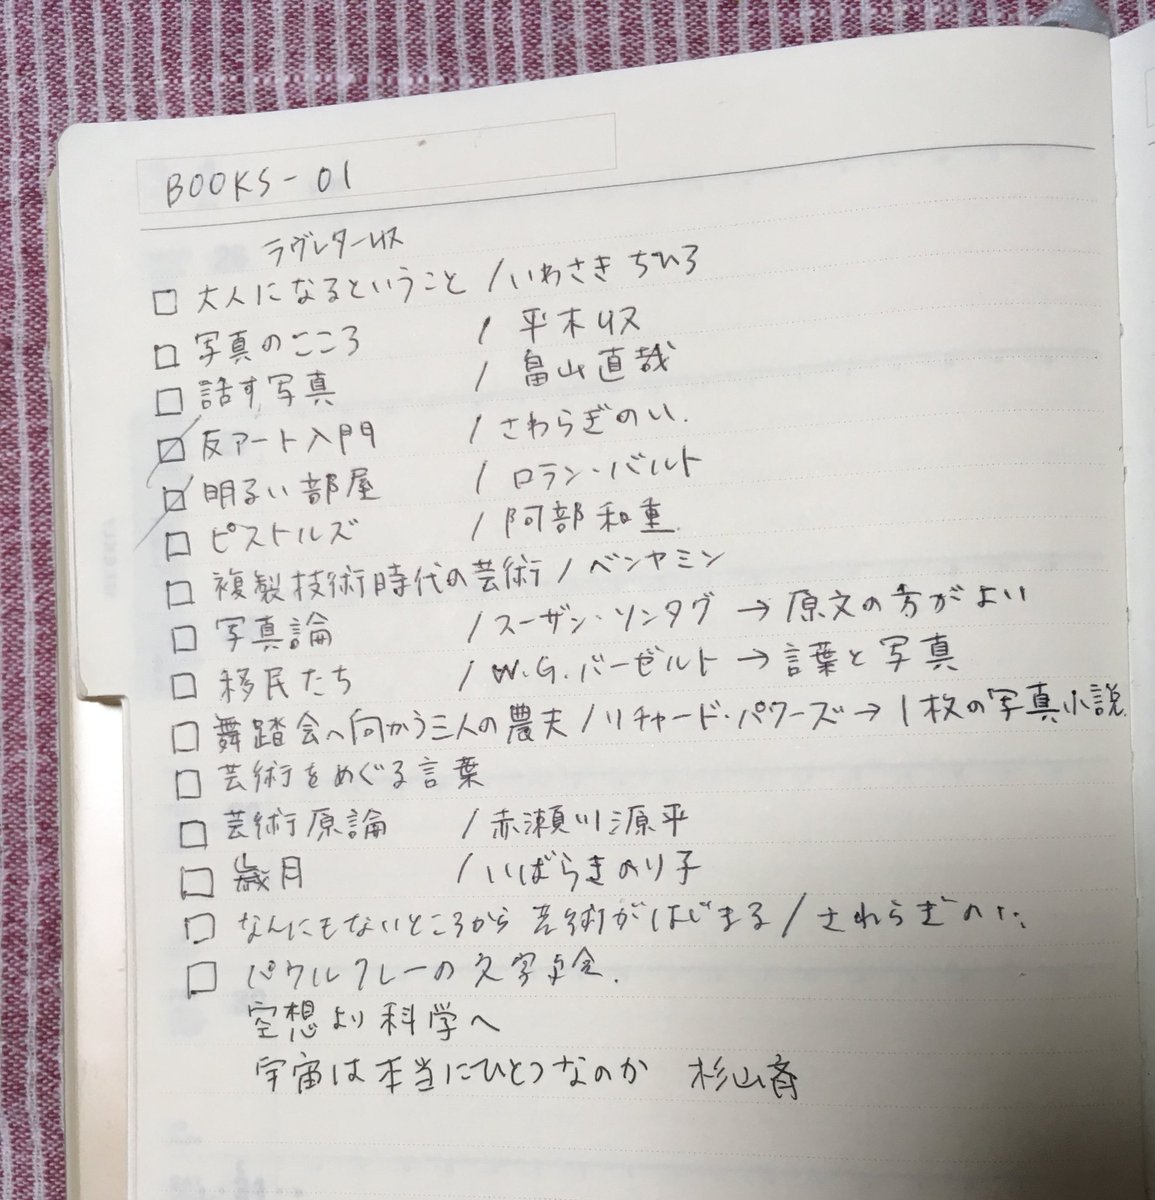 BOOKS-01
ラヴレターUS
□ 大人になるということ /いわさき ちひろ
□ 写真のこころ / 平木リス
□ 話す写真 / 畠山直哉
☑ 反アート入門 / さわらぎのい.
☑ 明るい部屋 / ロラン・バルト
□ ピストルズ / 阿部和重.
□ 複製技術時代の芸術 / ベンヤミン
□ 写真論 / スーザン・ソンタグ → 原文の方がよい
□ 移民たち / W.G.バーゼルト → 言葉と写真
□ 舞踏会へ向かう三人の農夫 / リチャード・パワーズ → 1枚の写真小説.
□ 芸術をめぐる言葉
□ 芸術原論 / 赤瀬川源平
□ 歳月 / いばらきのり子
□ なんにもないところから 芸術がはじまる / さわらぎのい.
□ パウルクレーの文字絵.
空想より科学へ
宇宙は本当にひとつなのか 杉山斉